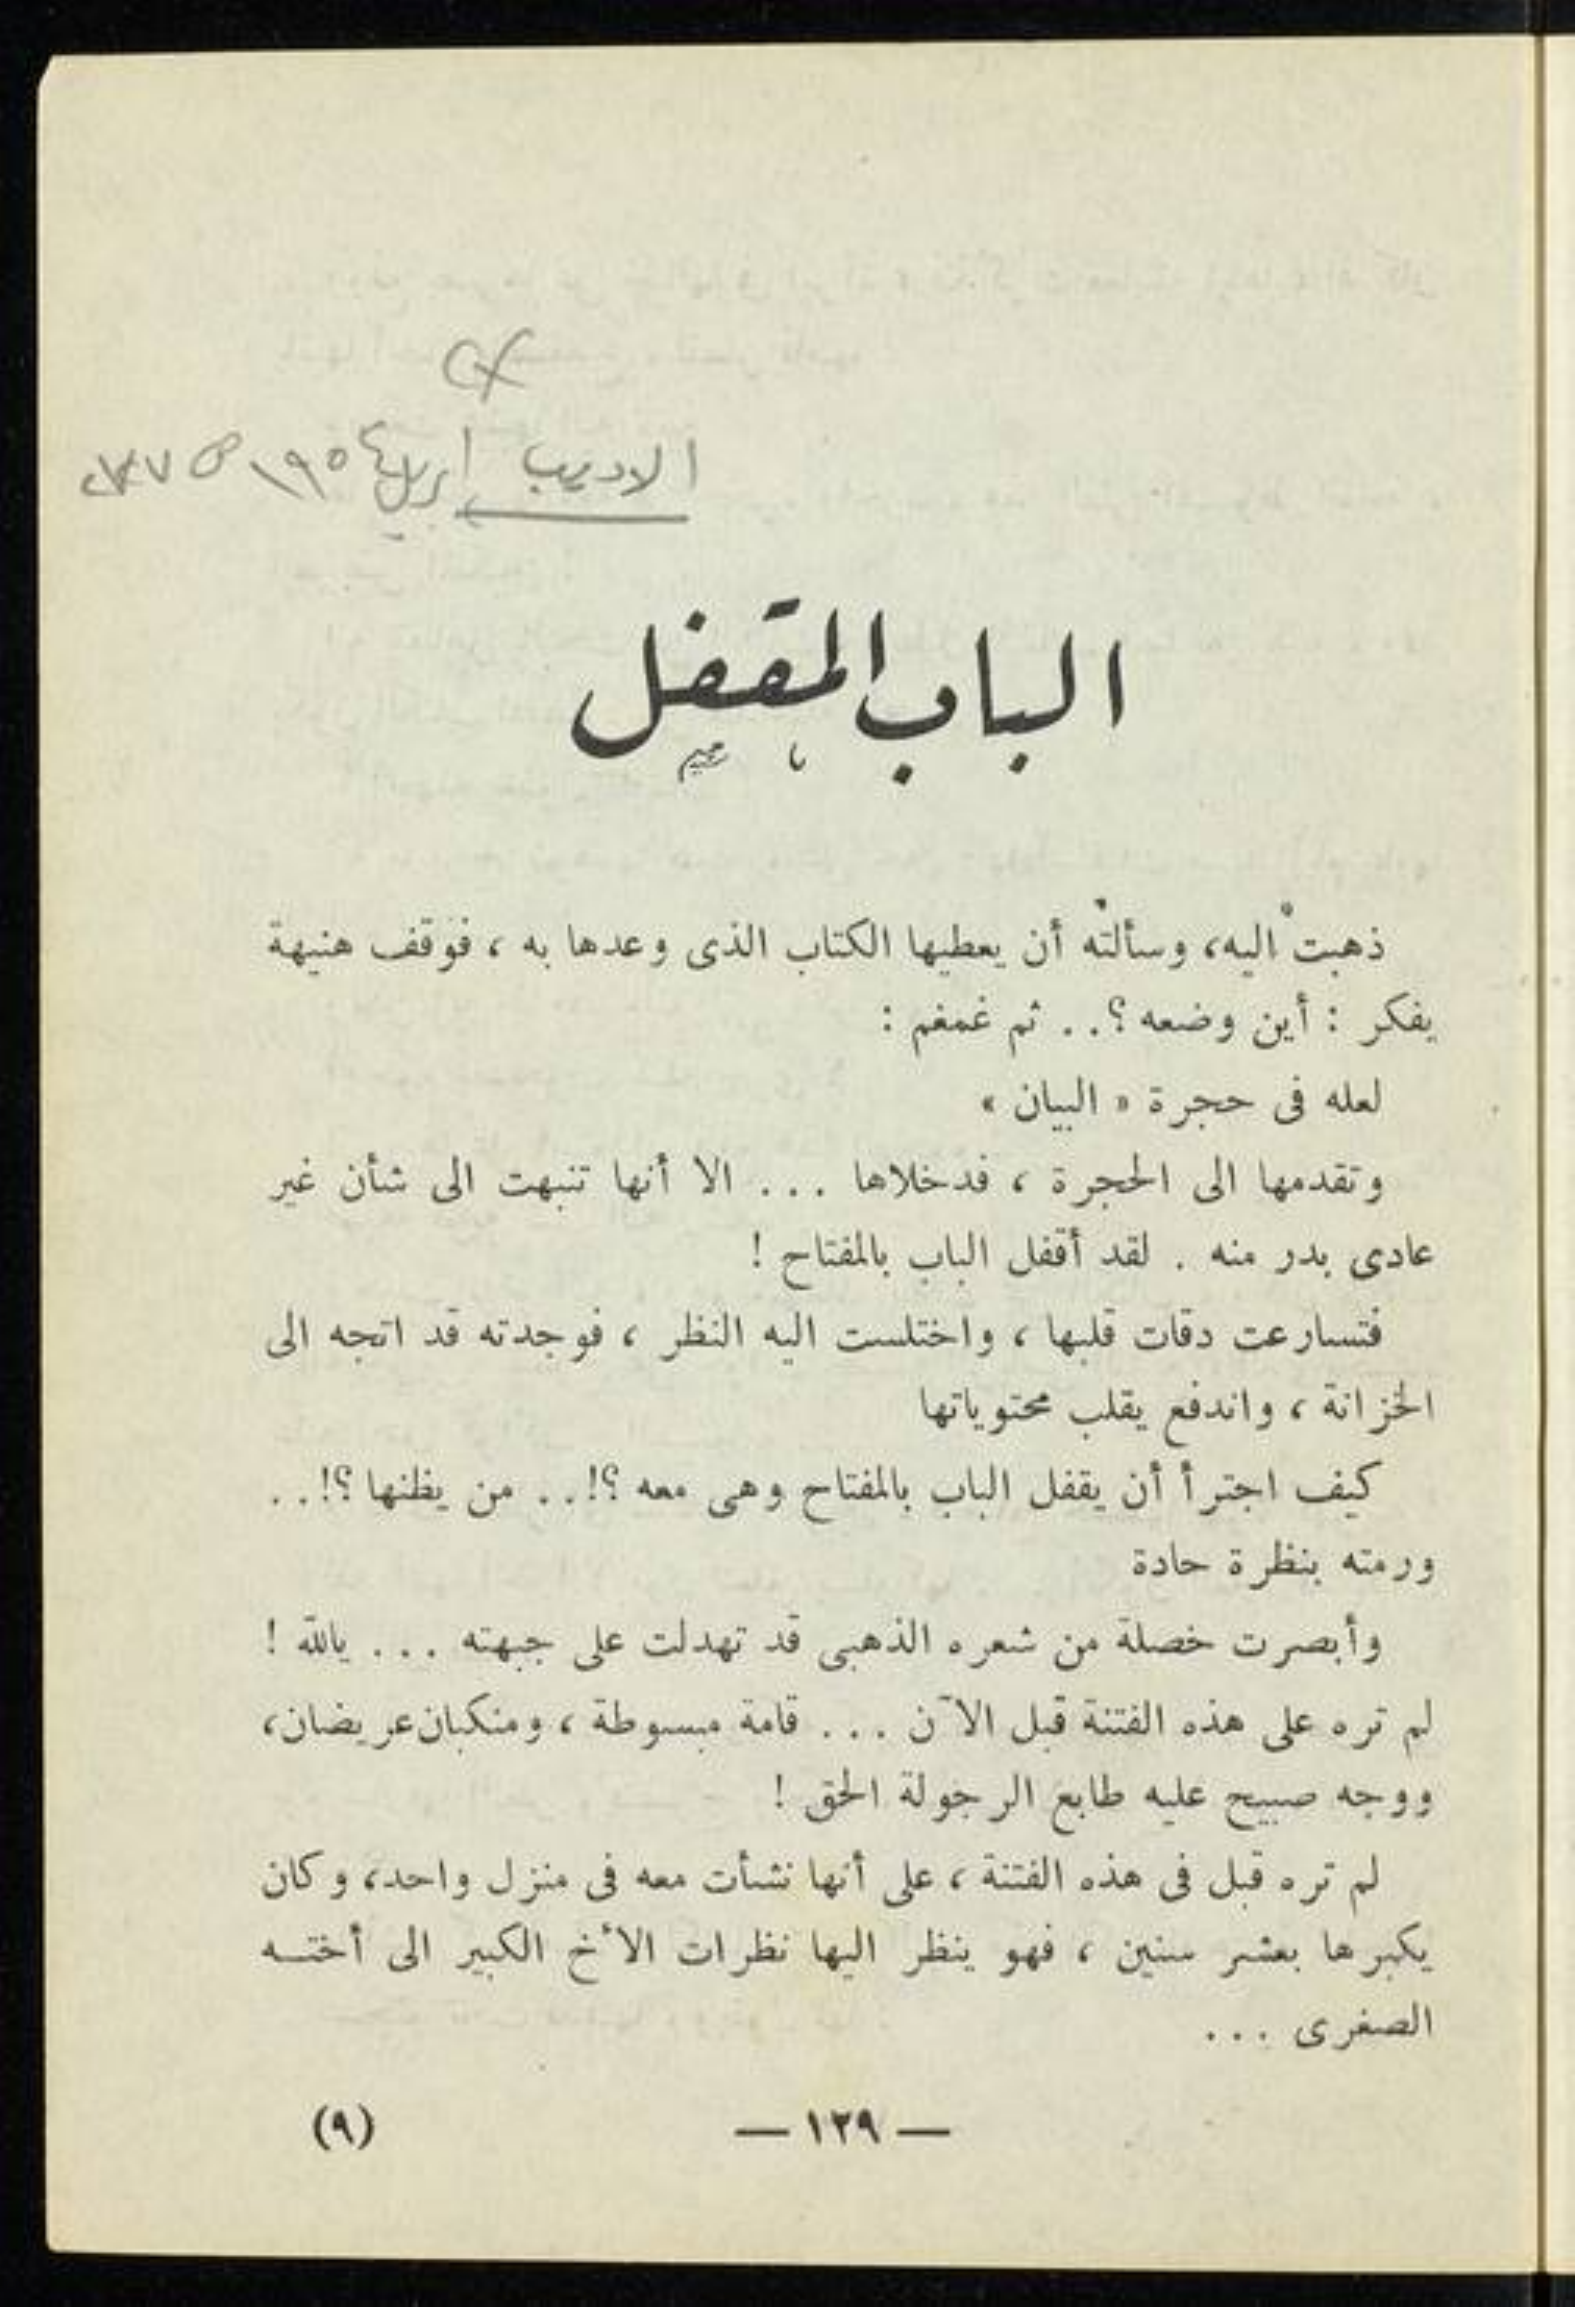 الاديب ابريل ١٩٥٤ ص
الباب المقفل
ذهبتْ اليه، وسألتْه أن يعطيها الكتاب الذى وعدها به ، فوقف هنيهة
يفكر : أين وضعه ؟.. ثم غمغم :
لعله فى حجرة « البيان »
وتقدمها الى الحجرة ، فدخلاها ... الا أنها تنبهت الى شأن غير
عادى بدر منه . لقد أقفل الباب بالمفتاح !
فتسارعت دقات قلبها ، واختلست اليه النظر ، فوجدته قد اتجه الى
الخزانة ، واندفع يقلب محتوياتها
كيف اجترأ أن يقفل الباب بالمفتاح وهى معه ؟!.. من يظنها ؟!..
ورمته بنظرة حادة
وأبصرت خصلة من شعره الذهبى قد تهدلت على جبهته ... يالله !
لم تره على هذه الفتنة قبل الآن ... قامة مبسوطة ، ومنكبان عريضان،
ووجه صبيح عليه طابع الرجولة الحق !
لم تره قبل فى هذه الفتنة ، على أنها نشأت معه فى منزل واحد، وكان
يكبرها بعشر سنين ، فهو ينظر اليها نظرات الأخ الكبير الى أخته
الصغرى ...
— ١٢٩ —
(٩)